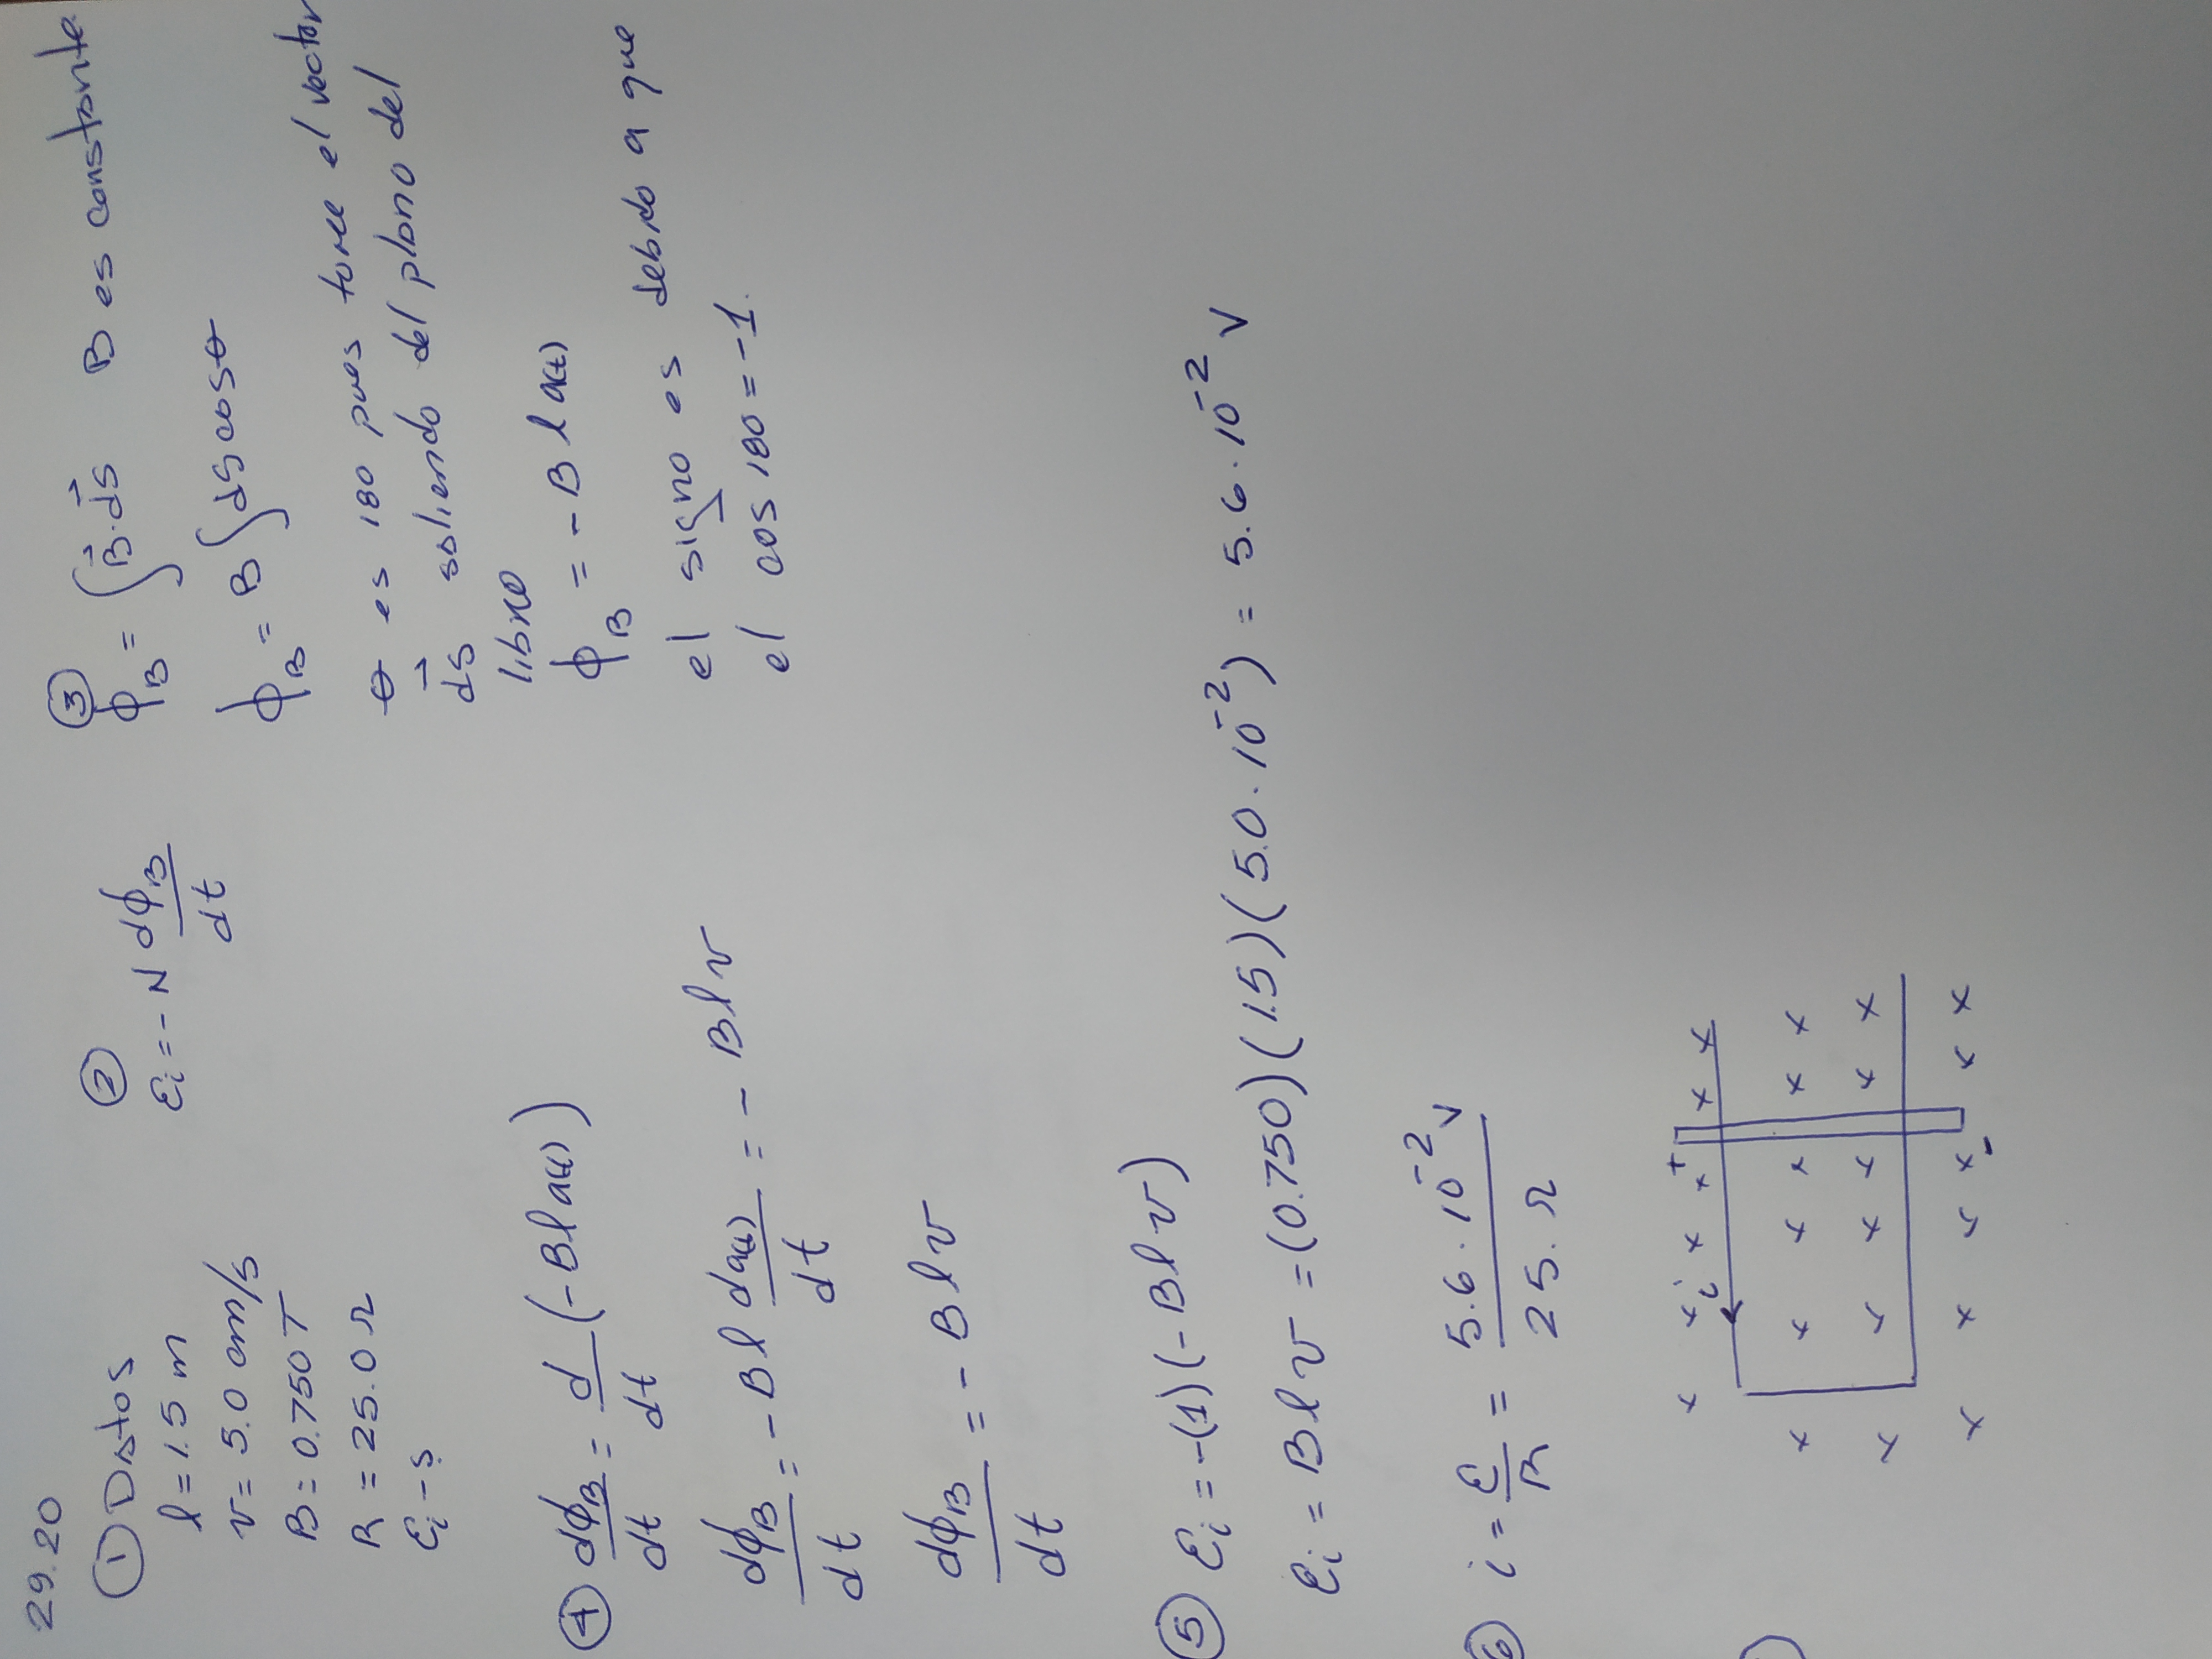 29.20
① Datos
l = 1.5 m
v = 5.0 cm/s
B = 0.750 T
R = 25.0 Ω
εi - ?
②
εi = - N dϕB/dt
③
ϕB = ∫B⃗·ds⃗ B es constante.
ϕB = B ∫ds cosθ
θ es 180 pues tome el vector
ds⃗ saliendo del plano del
libro
ϕB = - B l a(t)
el signo es debido a que
el cos 180 = -1.
④ dϕB/dt = d/dt (- B l a(t))
dϕB/dt = - B l da(t)/dt = - B l v
dϕB/dt = - B l v
⑤ εi = -(1)(- B l v)
εi = B l v = (0.750)(1.5)(5.0 · 10⁻²) = 5.6 · 10⁻² V
⑥ i = ε/R = 5.6 · 10⁻² V / 25. Ω
x x i x x + x x
x x x x x x
x x x x x x
x x x x - x x